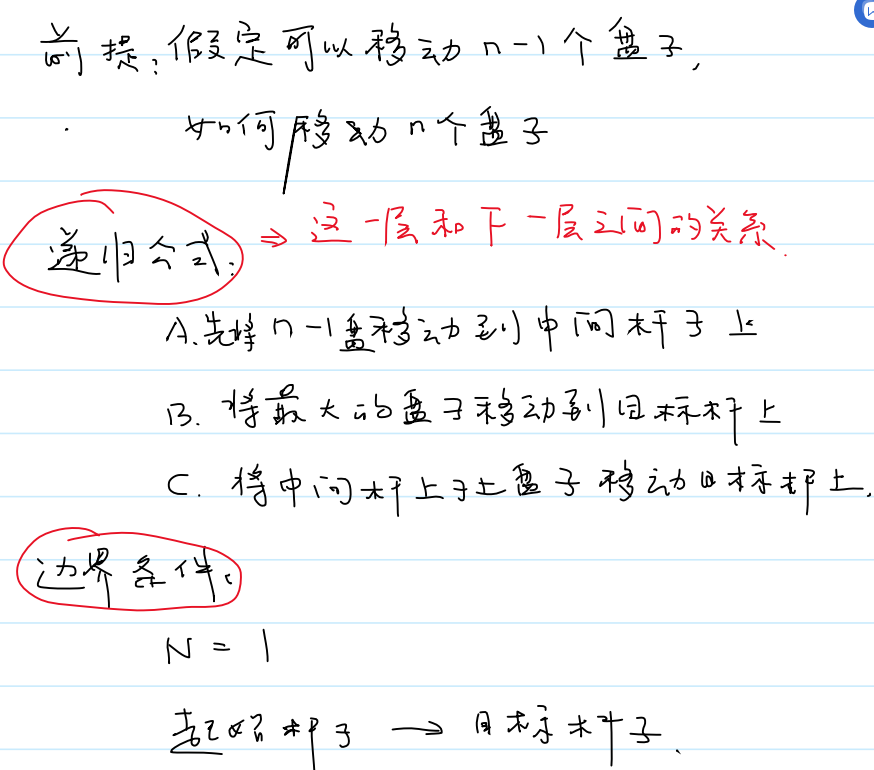 前提：假定可以移动n-1个盘子，
如何移动n个盘子
递归公式： ⇒ 这一层和下一层之间的关系.
A.先将n-1盘移动到中间杆子上
B. 将最大的盘子移动到目标杆上
C. 将中间杆上盘子移动目标杆上.
边界条件：
N = 1
起始杆子 → 目标杆子.